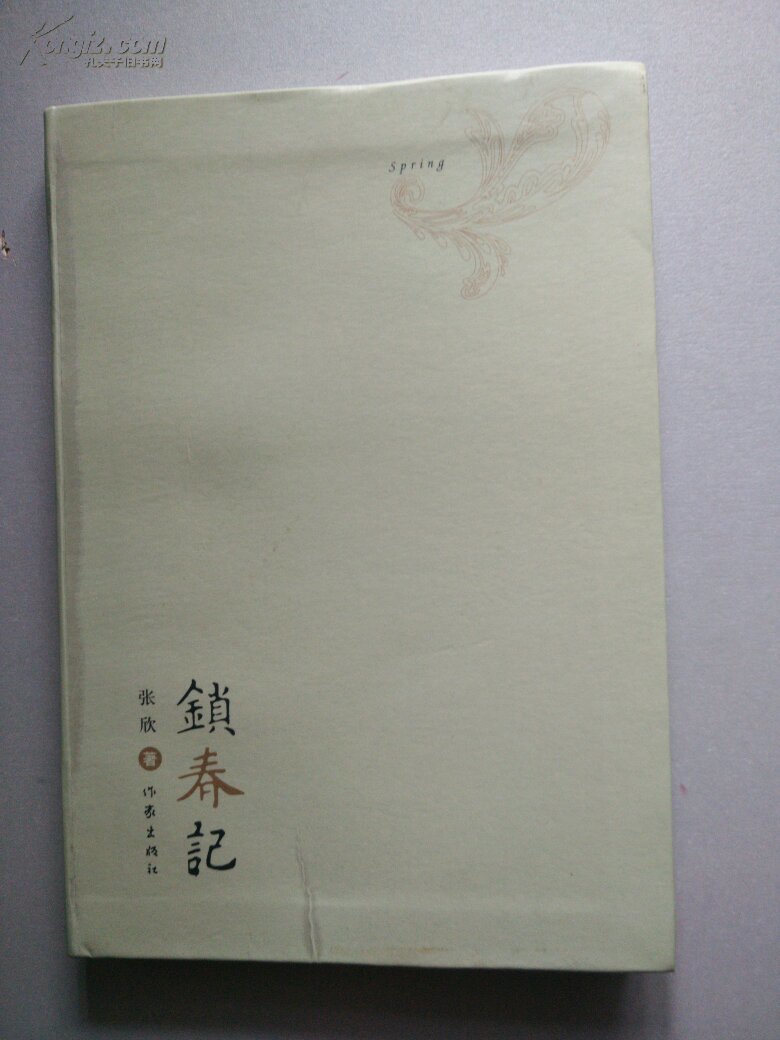 Kongfz.com
孔夫子旧书网
Spring
鎖春記
张欣 著
作家出版社